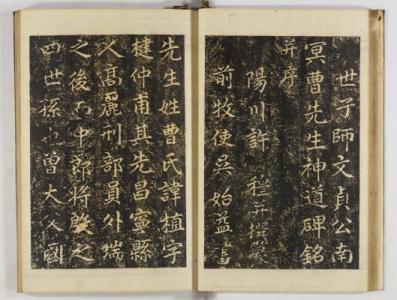 世子師文貞公南
冥曹先生神道碑銘
并序
陽川許 穆并撰篆
前牧使吳始益書
先生姓曹氏諱植字
楗仲甫其先昌寧縣
人高麗刑部員外瑞
之後而中郎將殷之
四世孫也曾大父國